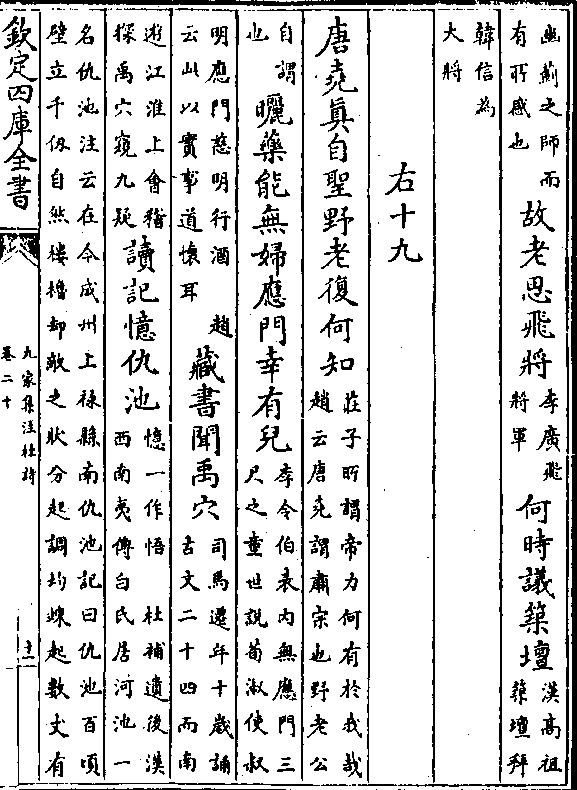 幽薊之師而有所感也故老思飛將李廣飛將軍何時議築壇漢高祖築壇拜
韓信為大將
右十九
唐堯真自聖野老復何知莊子所謂帝力何有於我哉趙云唐堯謂肅宗也野老公
自謂也曬藥能無婦應門幸有兒李令伯表内無應門三尺之童世說荀淑使叔
明應門慈明行酒趙云此以實事道懷耳藏書聞禹穴司馬遷年十歲誦古文二十四而南
遊江淮上會稽探禹穴窺九疑讀記憶仇池憶一作悟杜補遺後漢西南夷傳白氐居河池一
名仇池注云在今成州上祿縣南仇池記曰仇池百頃
壁立千仞自然樓櫓却敵之狀分起調均竦起數丈有
欽定四庫全書
九家集注杜詩
卷二十
十二